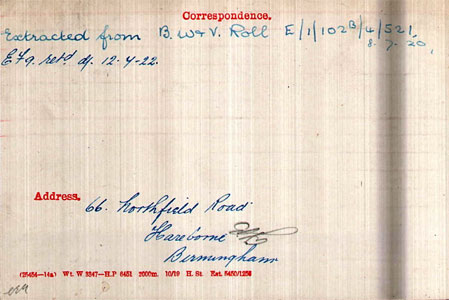 Correspondence.
Extracted from B. W & V. Roll E/1/102B/4/521
8.7.20.
EF9. retd d/. 12-4-22.
Address.
66. Northfield Road
Harborne
Birmingham
(25454-14a) Wt. W 3347—H.P 6451 2000m. 10/19 H. St. Est. 5400/1250